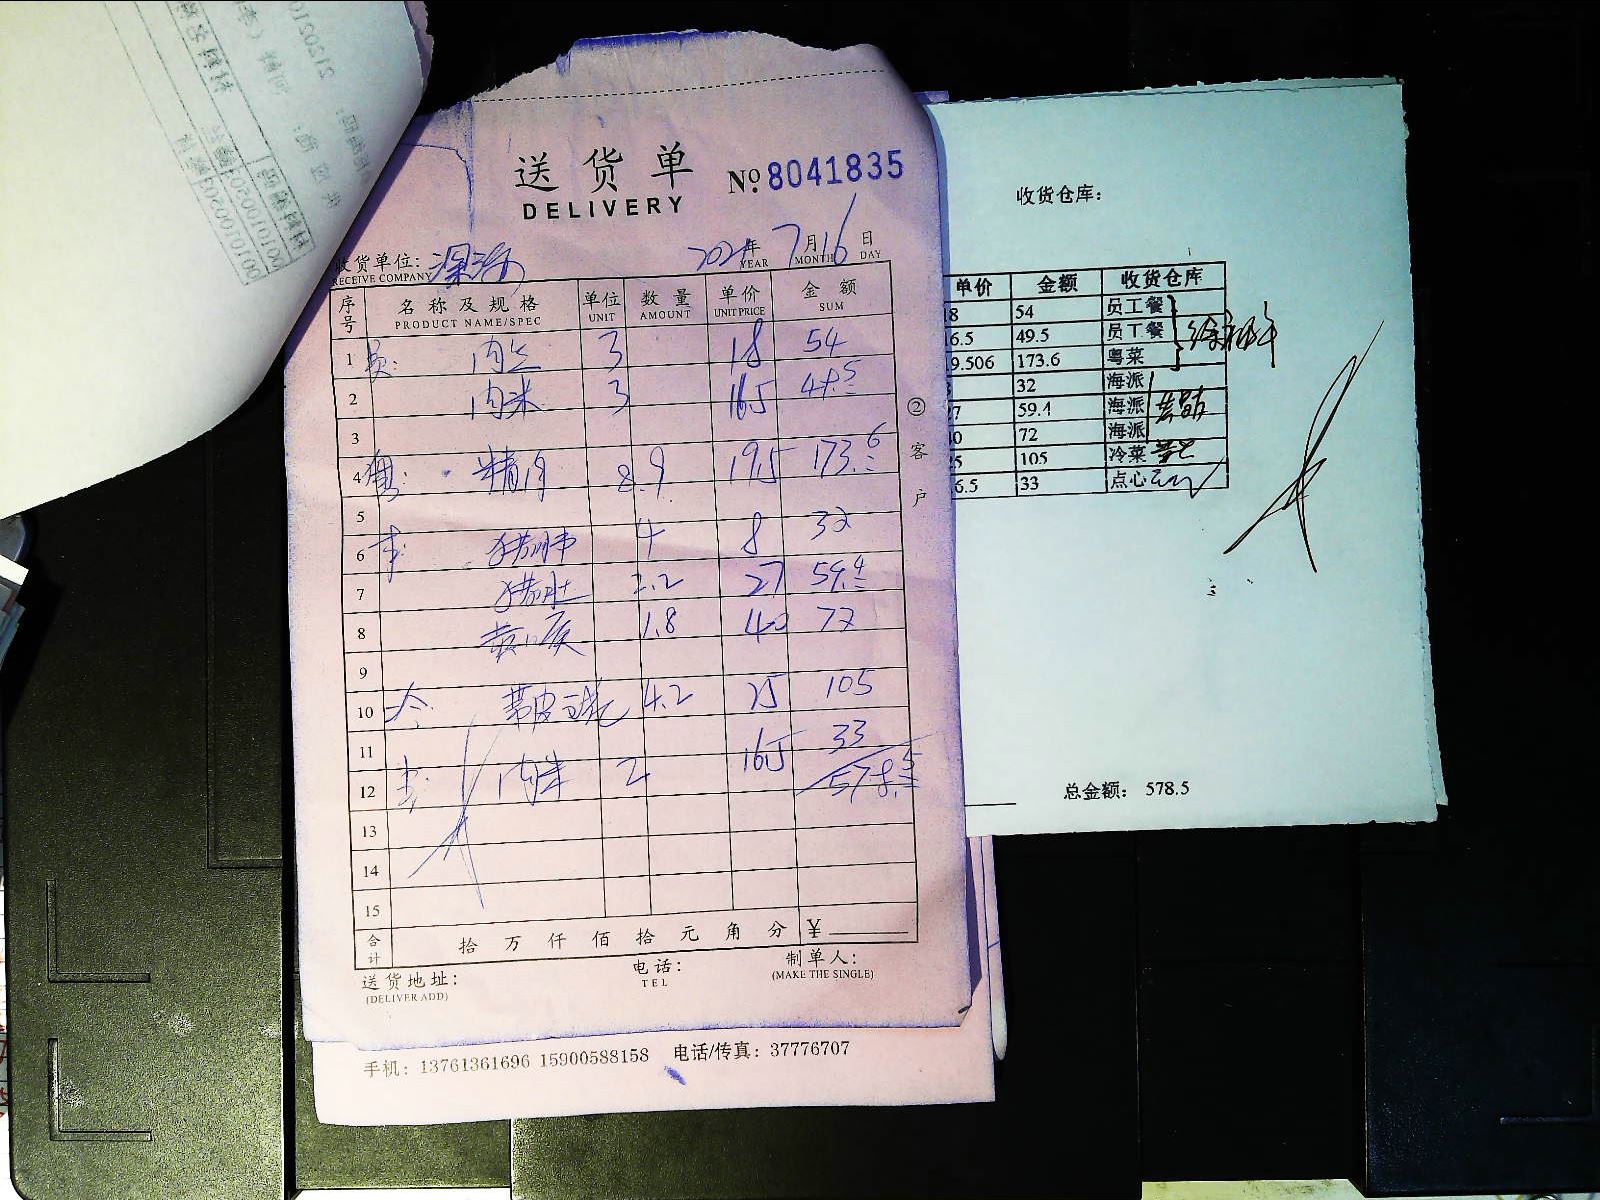 送货单
DELIVERY
№ 8041835
收货单位:
RECEIVE COMPANY
2021年 7月16日
YEAR MONTH DAY
序号 名称及规格 单位 数量 单价 金额
PRODUCT NAME/SPEC UNIT AMOUNT UNIT PRICE SUM
1 员: 肉丝 3 18 54
2 肉米 3 165 49.5
3
4 粤: 精肉 8.9 19.5 173.6
5
6 本: 4 8 32
7 猪肚 2.2 27 59.4
8 黄喉 1.8 40 72
9
10 冷: 4.2 25 105
11 33
12 点: 肉米 2 165 578.5
13
14
15
合计 拾 万 仟 佰 拾 元 角 分 ¥
送货地址: 电话: 制单人:
(DELIVER ADD) TEL (MAKE THE SINGLE)
② 客户
手机: 13761361696 15900588158 电话/传真: 37776707
收货仓库:
单价 金额 收货仓库
8 54 员工餐
6.5 49.5 员工餐
9.506 173.6 粤菜
32 海派
7 59.4 海派
40 72 海派
5 105 冷菜
6.5 33 点心
总金额: 578.5